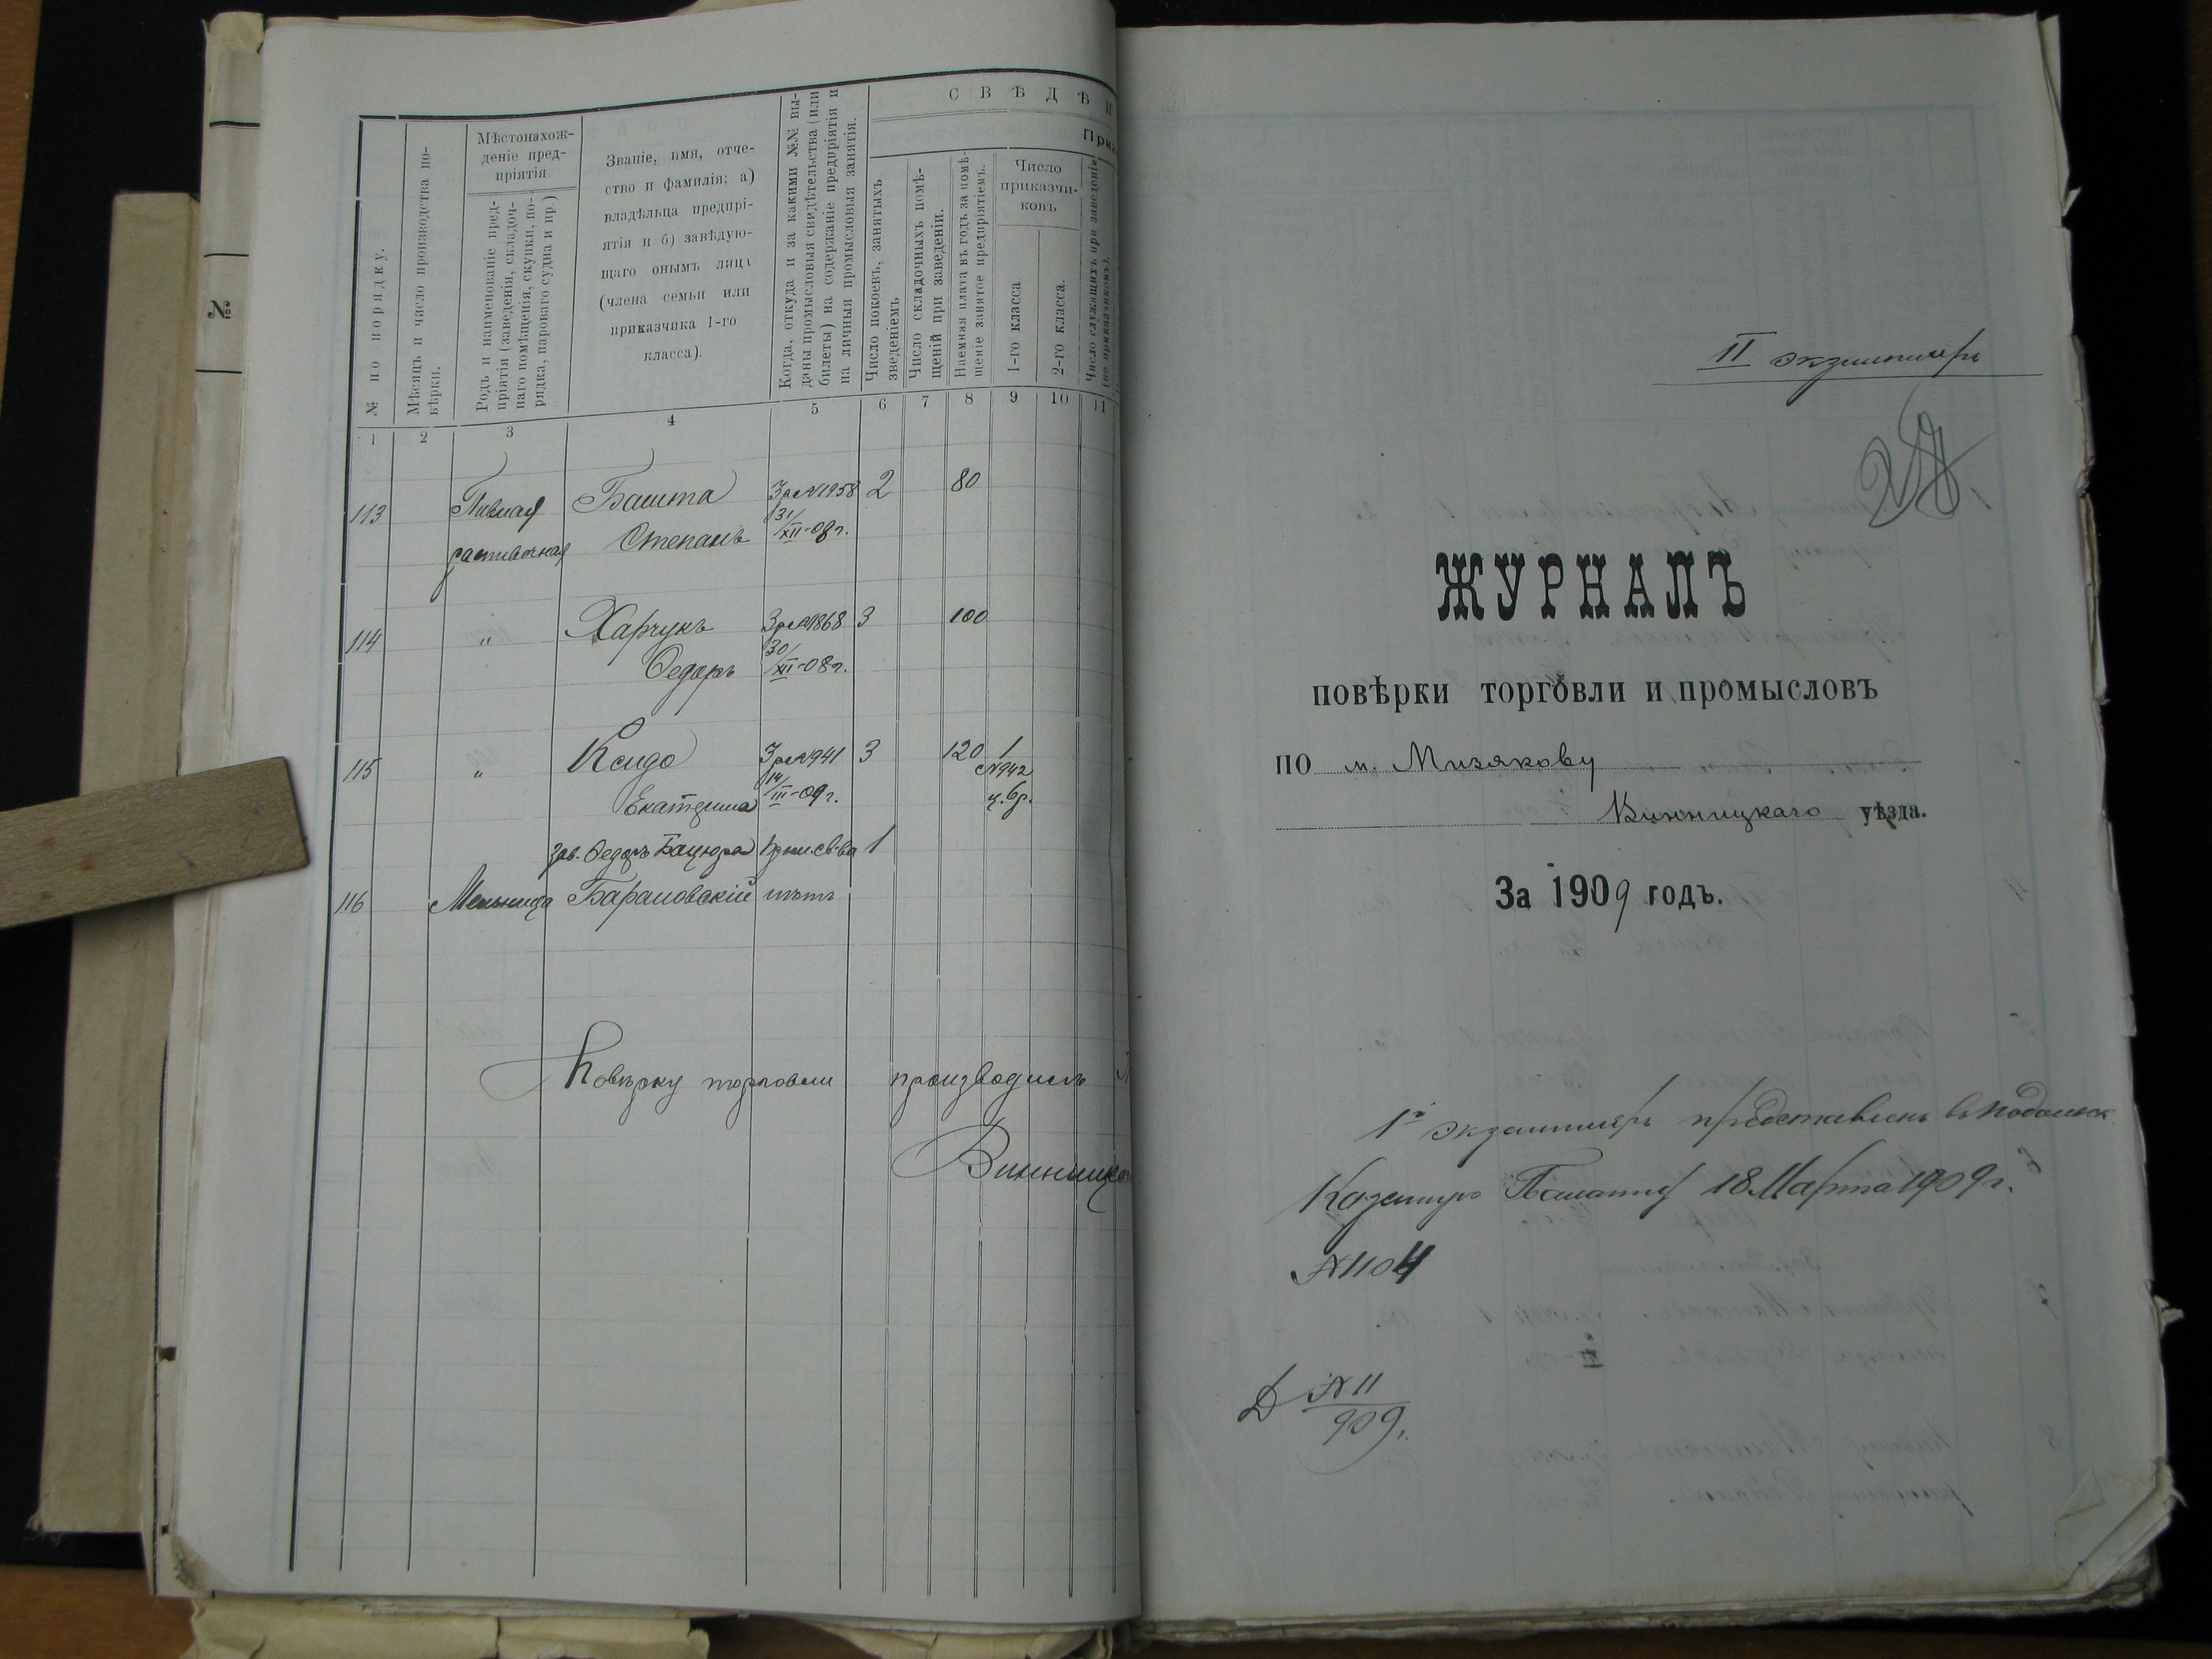 №
№ по порядку.
Мѣсяцъ и число производства по-
вѣрки.
Мѣстонахож-
деніе пред-
пріятія
Родъ и наименованіе пред-
пріятія (заведенія, складоч-
наго помѣщенія, скупки, по-
рядка, пароваго судна и пр.)
Званіе, имя, отче-
ство и фамилія: а)
владѣльца предпрі-
ятія и б) завѣдую-
щаго онымъ лица
(члена семьи или
приказчика 1-го
класса).
Когда, откуда и за какими №№ вы-
даны промысловыя свидѣтельства (или
билеты) на содержаніе предпріятія и
на личныя промысловыя занятія.
С В Ѣ Д Ѣ Н
Прик
Число покоевъ, занятыхъ
зведеніемъ
Число складочныхъ помѣ-
щеній при заведеніи.
Наемная плата въ годъ за помѣ-
щеніе занятое предпріятіемъ.
Число
приказчи-
ковъ
1-го класса
2-го класса.
Число служащихъ при заведеніи
(не приказчиковъ).
1 2 3 4 5 6 7 8 9 10 11
113 Пивная Башта 3 р. №1958 2 80
распивочная Степанъ 31/XII-08 г.
114 " Харчукъ 3 р. №1868 3 100
Федоръ 30/XI-08 г.
115 " Ксидо 3 р. №941 3 120 1
№942
Екатерина 14/III-09 г. ц. 6 р.
зав. Федоръ Бацюра 1
116 Мельница Барановскій нѣтъ
Повѣрку торговли производилъ
Винницка
II экземпляръ
ЖУРНАЛЪ
повѣрки торговли и промысловъ
по м. Мизякову
Винницкаго уѣзда.
За 1909 годъ.
1й экземпляръ представленъ въ Подольск
Казенную Палату 18 Марта 1909 г.
№1104
Д №11
909 г.